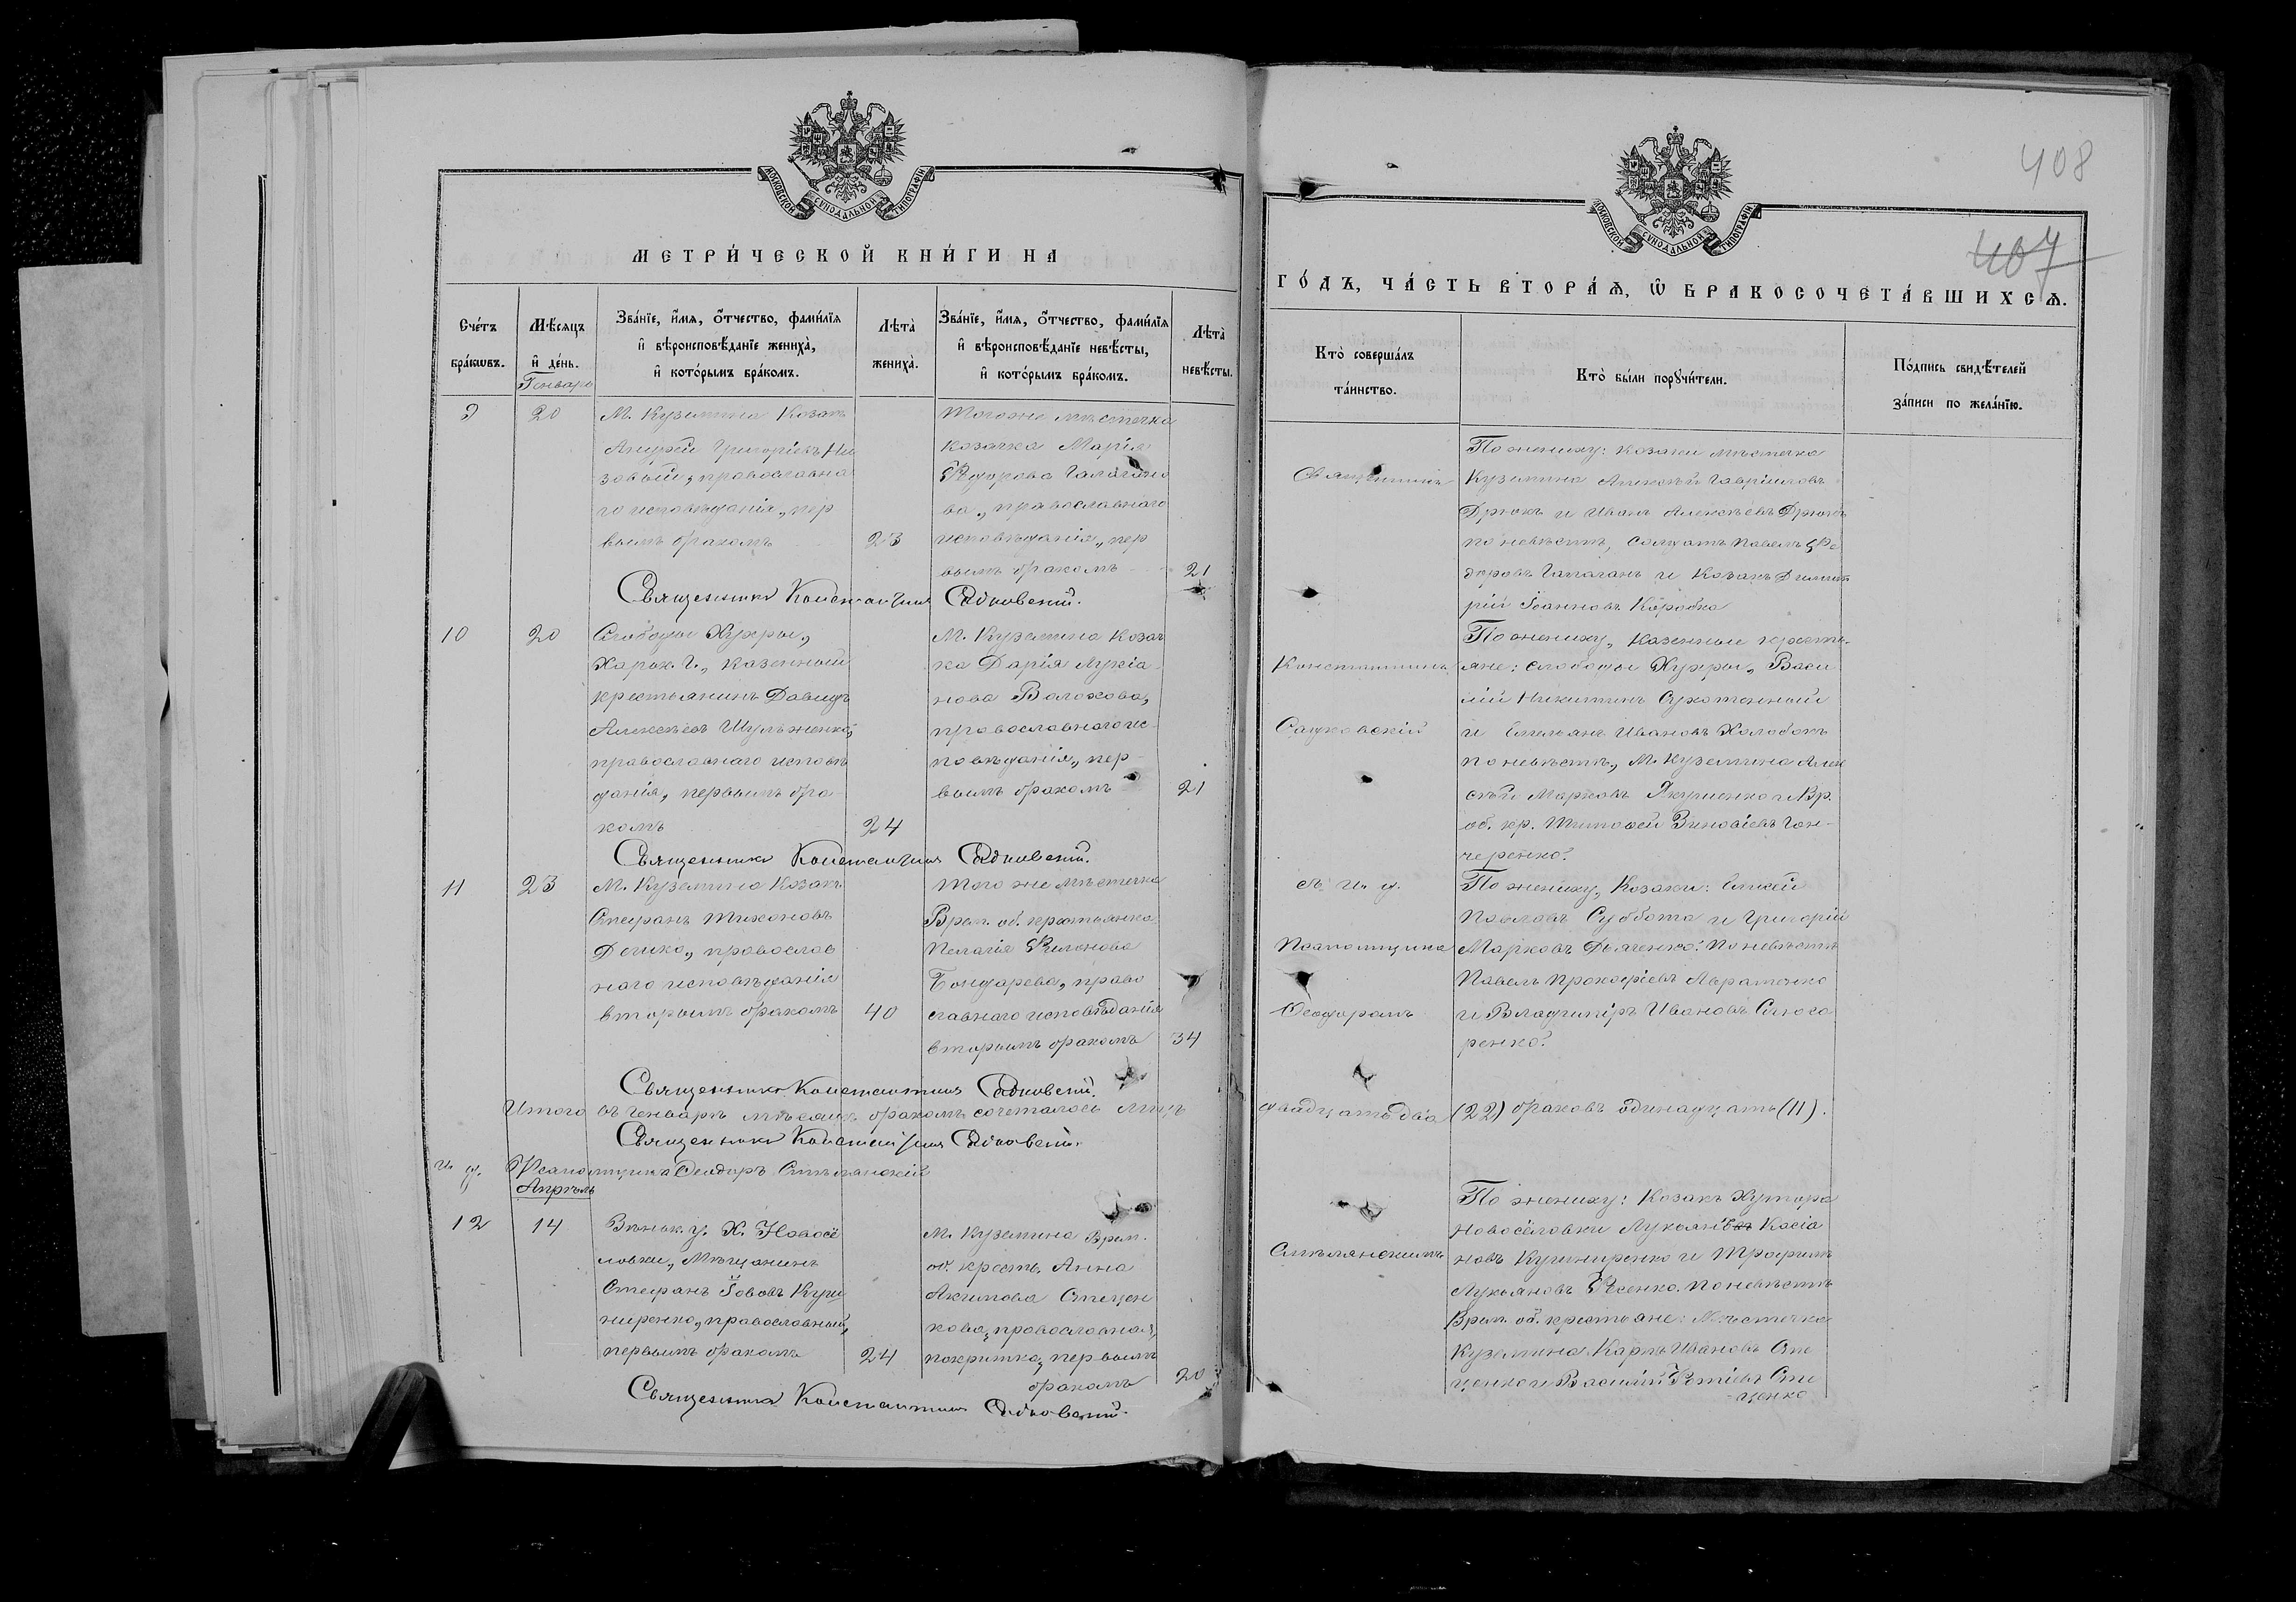 МОСКОВСКОЙ СѴНОДАЛЬНОЙ ТИПОГРАФІИ
МЕТРИ́ЧЕСКОЙ КНИ́ГИ НА
Сче́тъ бра́кѡвъ.
Мѣ́сяцъ и҆ де́нь.
Зва́нїе, и҆́мя, ѻ҆́тчество, фами́лїя
и҆ вѣроисповѣ́данїе жениха̀,
и҆ кото́рымъ бра́комъ.
Лѣта̀ жениха̀.
Зва́нїе, и҆́мя, ѻ҆́тчество, фами́лїя
и҆ вѣроисповѣ́данїе невѣ́сты,
и҆ кото́рымъ бра́комъ.
Лѣта̀ невѣ́сты.
Генварь
9
20
М. Куземина Козакъ
Андрей Григоріевъ Ни
зовый, православна
го исповѣданія, пер
вымъ бракомъ
23
Тогоже мѣстечка
козачка Марія
Ѳедорова Галагано
ва, православнаго
исповѣданія, пер
вымъ бракомъ
21
Священникъ Константинъ Садковскій.
10
20
Слободы Хухры,
Харьк. Г., казенный
крестьянинъ Давидъ
Алексѣевъ Шульженко,
православнаго исповѣ
данія, первымъ бра
комъ
24
М. Куземина Козач
ка Дарія Лукіа
нова Волохова,
православнаго ис
повѣданія, пер
вымъ бракомъ
21
Священникъ Константинъ Садковскій.
11
23
М. Куземина Козакъ
Стефанъ Тихоновъ
православ
наго исповѣданія
вторымъ бракомъ
40
Того же мѣстечка
Врем. об. крестьянка
Пелагія Филонова
Бондарева, право
славнаго исповѣданія
вторымъ бракомъ
34
Священникъ Константинъ Садковскій.
Итого въ Генварѣ мѣсяцѣ бракомъ сочеталось лицъ
Священникъ Константинъ Садковскій.
И. д. Псаломщика Ѳеодоръ Стѣлянскій
Апрѣль
12
14
Зѣньк. у. Х. Новосё
ловки, Мѣщанинъ
Стефанъ Іововъ Куш
ниренко, православный,
первымъ бракомъ
24
М. Куземина Врем.
об. крест. Анна
Акимова Стецен
кова, православная,
покритка, первымъ
бракомъ
20
Священникъ Константинъ Садковскій.
408
407
МОСКОВСКОЙ СѴНОДАЛЬНОЙ ТИПОГРАФІИ
ГО́ДЪ, ЧА́СТЬ ВТОРА́Я, Ѡ҆ БРАКОСОЧЕТА́ВШИХСЯ.
Кто̀ соверша́лъ та́инство.
Кто̀ бы́ли порꙋчи́тели.
По́дпись свидѣ́телей за́писи по жела́нїю.
Священникъ
Константинъ
Садковскій
съ и. д.
Псаломщика
Ѳеодоромъ
По жениху: козаки мѣстечка
Куземина Алексѣй Гавріиловъ
Дрюкъ и Иванъ Алексѣевъ Дрюкъ
по невѣстѣ, солдатъ Павелъ Ѳе
доровъ Галаганъ и Козакъ Димит
рій Іоанновъ Коробка
По жениху, казенные кресть
яне: слободы Хухры, Васи
лій Никитинъ Сухотенный
и Емельянъ Ивановъ Холобокъ
по невѣстѣ, М. Куземина Алек
сѣй Марковъ Якушенко и Вр.
об. кр. Тимофей Зиновіевъ Гон
черенко.
По жениху, Козаки: Елисей
Павловъ Суббота и Григорій
Марковъ Дьяченко. По невѣстѣ
Павелъ Прокофіевъ Авраменко
и Владиміръ Ивановъ Слюса
ренко.
двадцать два (22) браковъ одинадцать (11).
Стѣлянскимъ
По жениху: Козакъ Хутора
Новосёловки Лукьянъ Касіа
новъ Кушниренко и Трофимъ
Лукьяновъ Ѳесенко. По невѣстѣ
Врем. об. крестьяне: Мѣстечка
Куземина Карпъ Ивановъ Сте
ценко и Василій Фотіевъ Сте
ценко